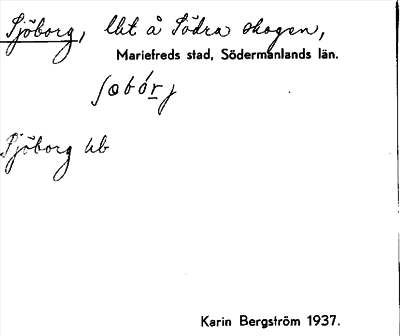 Sjöborg, lht å Södra skogen,
Mariefreds stad, Södermanlands län.
Sjöborg hb
Karin Bergström 1937.